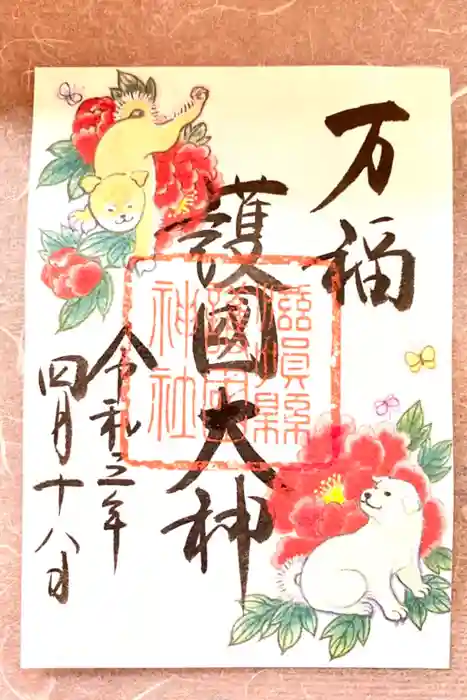 万福
護國大神
令和三年
四月十八日
滋賀縣
護國
神社